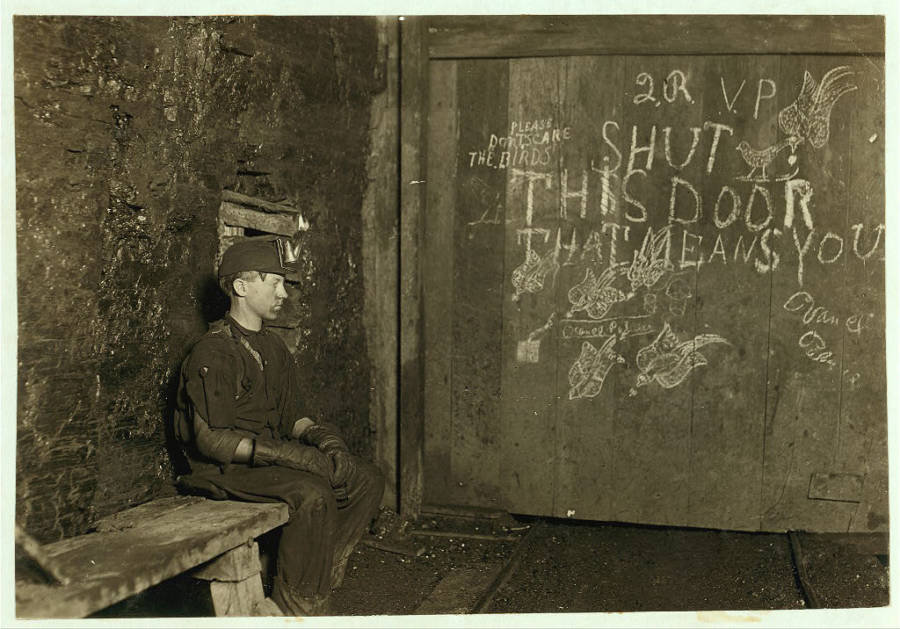 2R VP
PLEASE
DONT SCARE
THE BIRDS
SHUT
THIS DOOR
THAT MEANS YOU